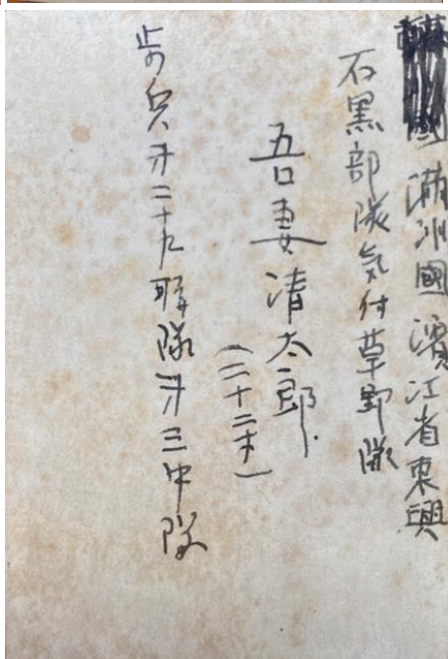 満洲國濱江省東興
石黒部隊気付草野隊
吾妻清太郎
(二十二才)
歩兵才二十九聯隊才三中隊